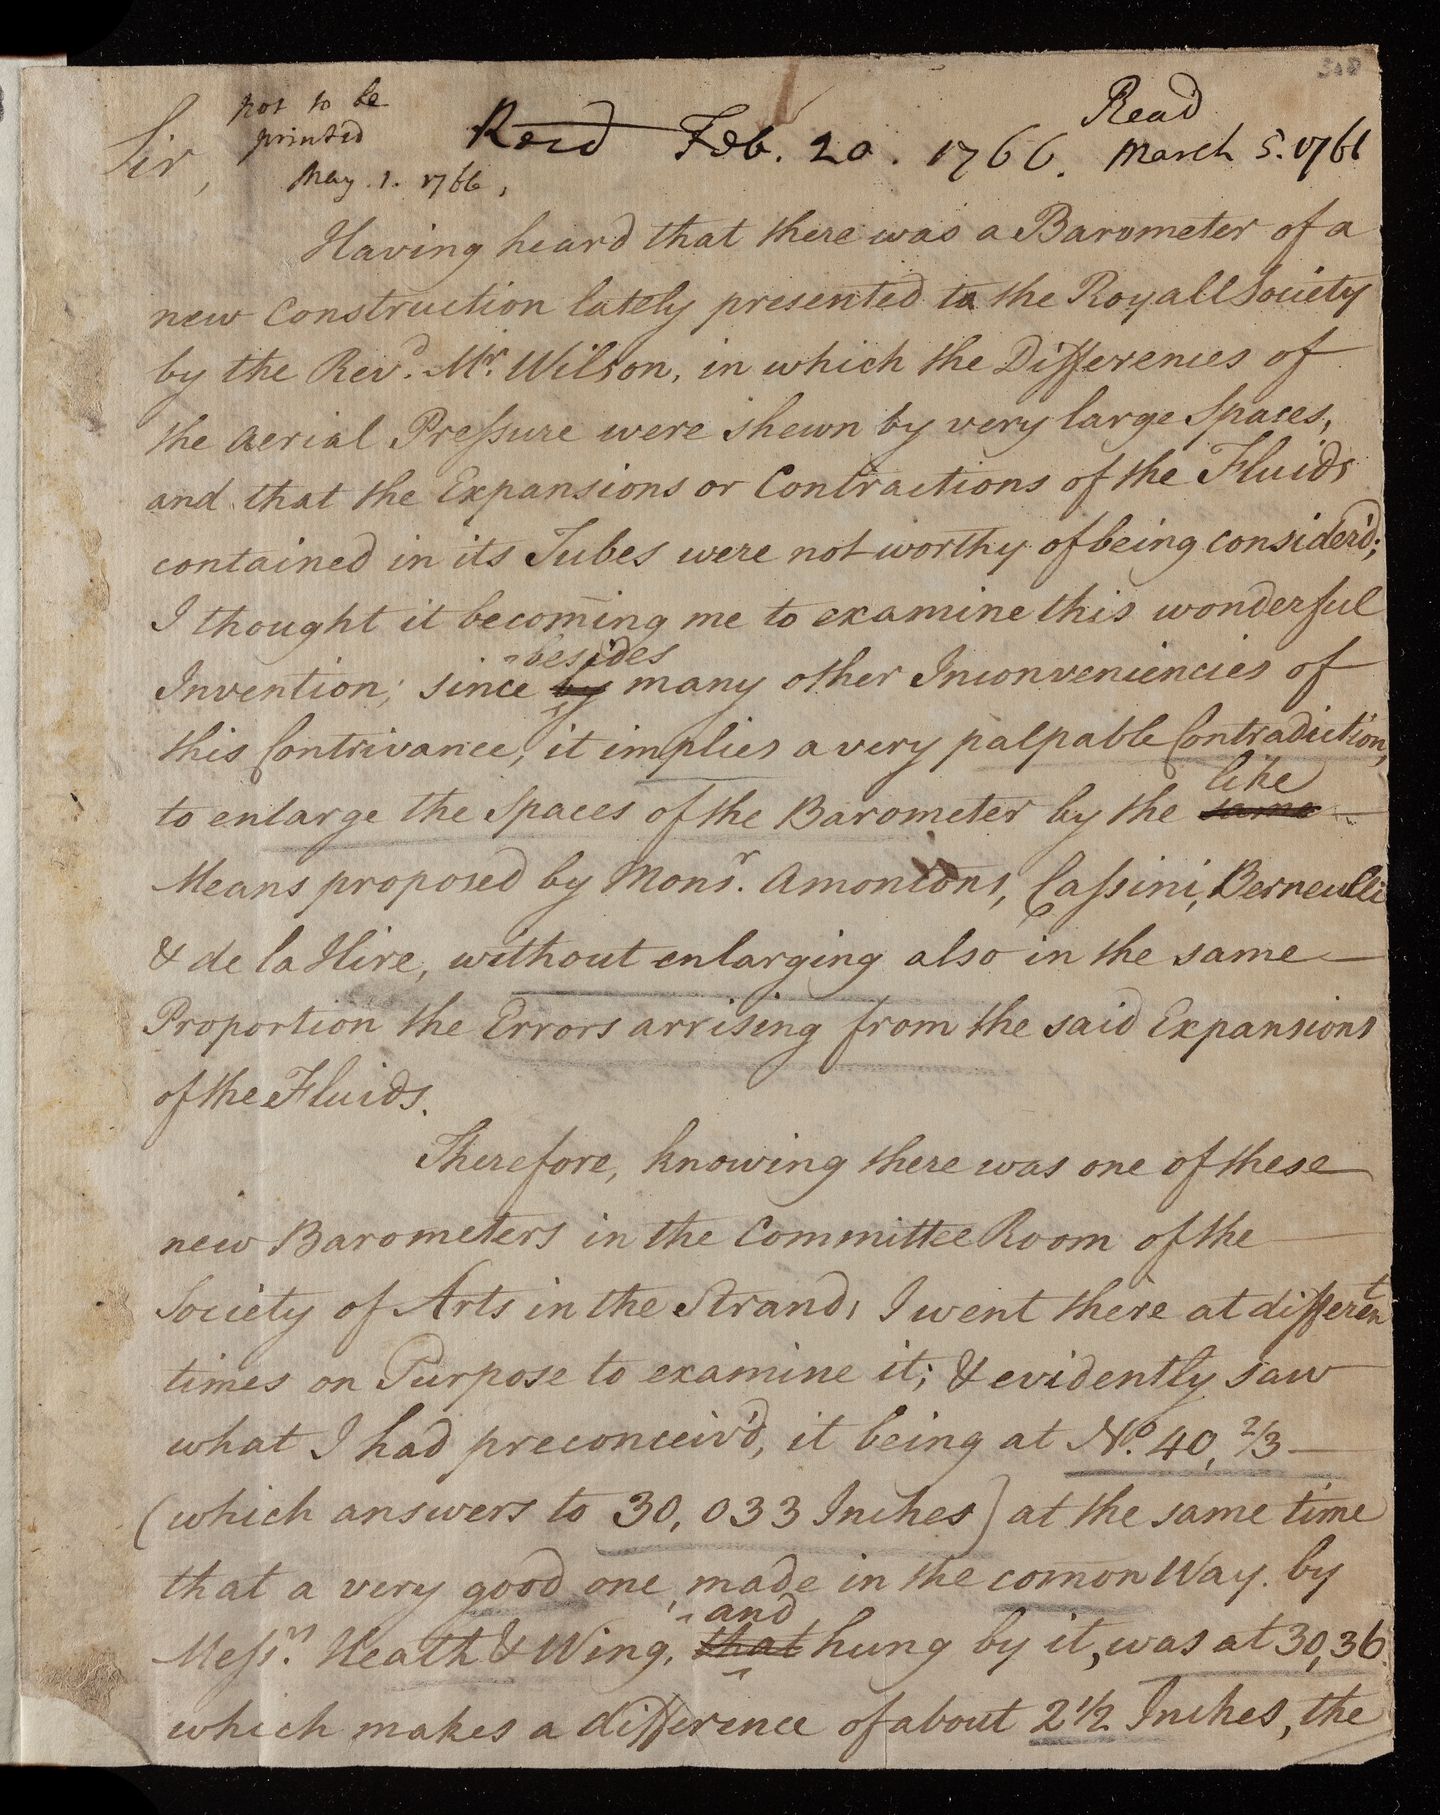 308
Read
Sir, not to be
printed
May. 1. 1766,
Read Feb. 20. 1766. March 5. 1766
Having heard that there was a Barometer of a
new Construction lately presented to the Royall Society
by the Revd. Mr. Wilson, in which the Differences of
the Aerial Preſsure were shewn by very large Spaces,
and that the Expansions or Contractions of the Fluids
contained in its Tubes were not worthy of being consider'd;
I thought it becoming me to examine this wonderful
besides
Invention; since by many other Inconveniencies of
this Contrivance, it implies a very palpable Contradiction,
like
to enlarge the Spaces of the Barometer by the same
Means proposed by Monsr. Amontons, Caſsini, Berneulli
& de la Hire, without enlarging also in the same
Proportion the Errors arrising from the said Expansions
of the Fluids.
Therefore, knowing there was one of these
new Barometers in the Committee Room of the
Society of Arts in the Strand, I went there at different
times on Purpose to examine it; & evidently saw
what I had preconceiv'd, it being at No. 40, 2/3
(which answers to 30,033 Inches) at the same time
that a very good one, made in the comon Way. by
and
Meſsrs. Heath & Wing, that hung by it, was at 30,36.
which makes a difference of about 2 1/2 Inches, the